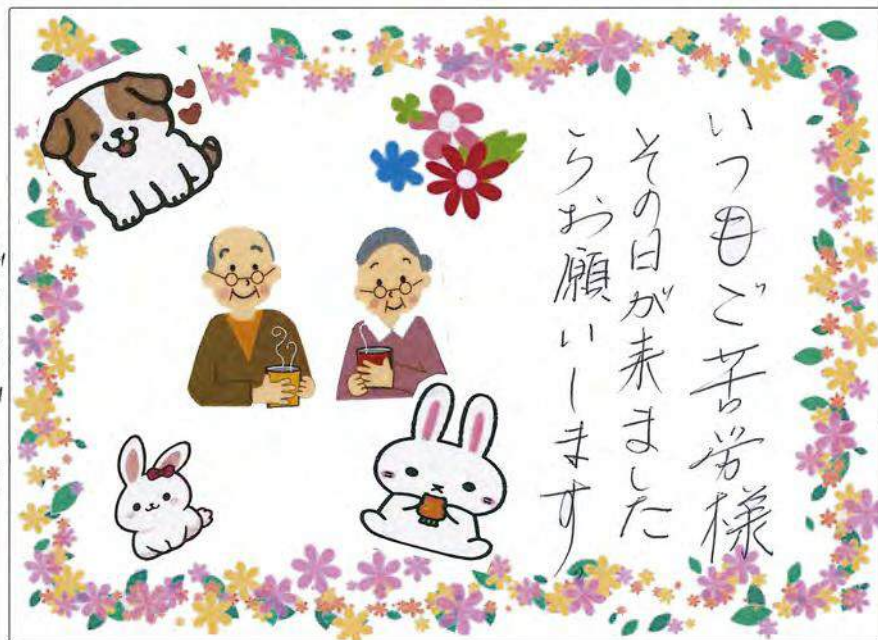 いつもご苦労様
その日が来ました
らお願いします